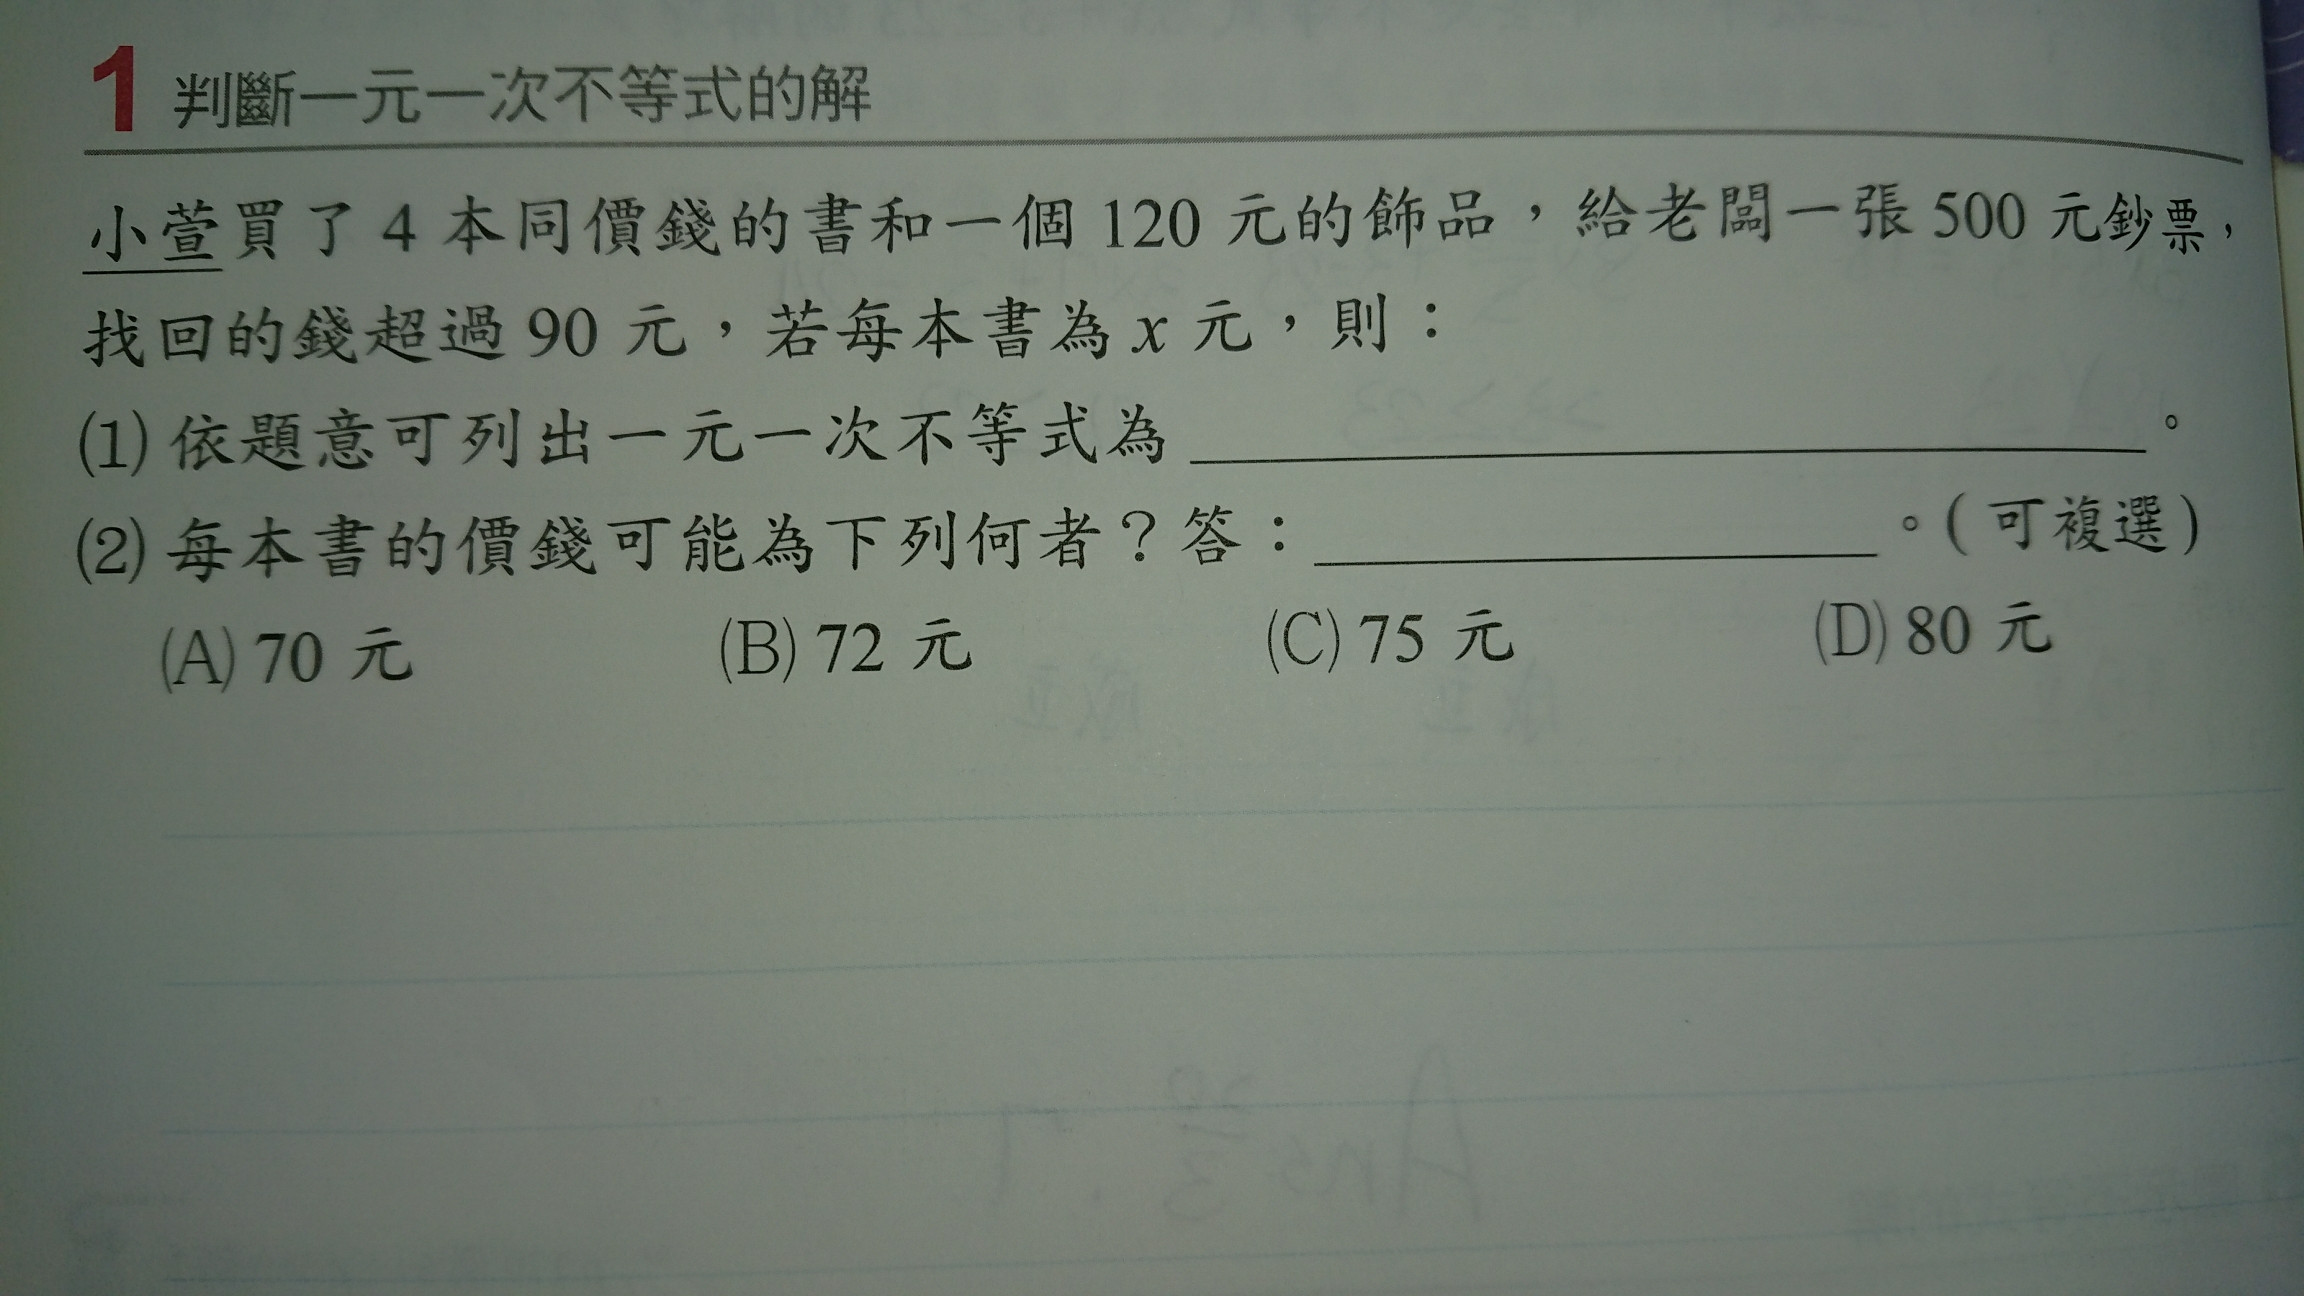 1 判斷一元一次不等式的解
小萱買了 4 本同價錢的書和一個 120 元的飾品,給老闆一張 500 元鈔票,
找回的錢超過 90 元,若每本書為 x 元,則:
(1) 依題意可列出一元一次不等式為 。
(2) 每本書的價錢可能為下列何者?答: 。(可複選)
(A) 70 元 (B) 72 元 (C) 75 元 (D) 80 元